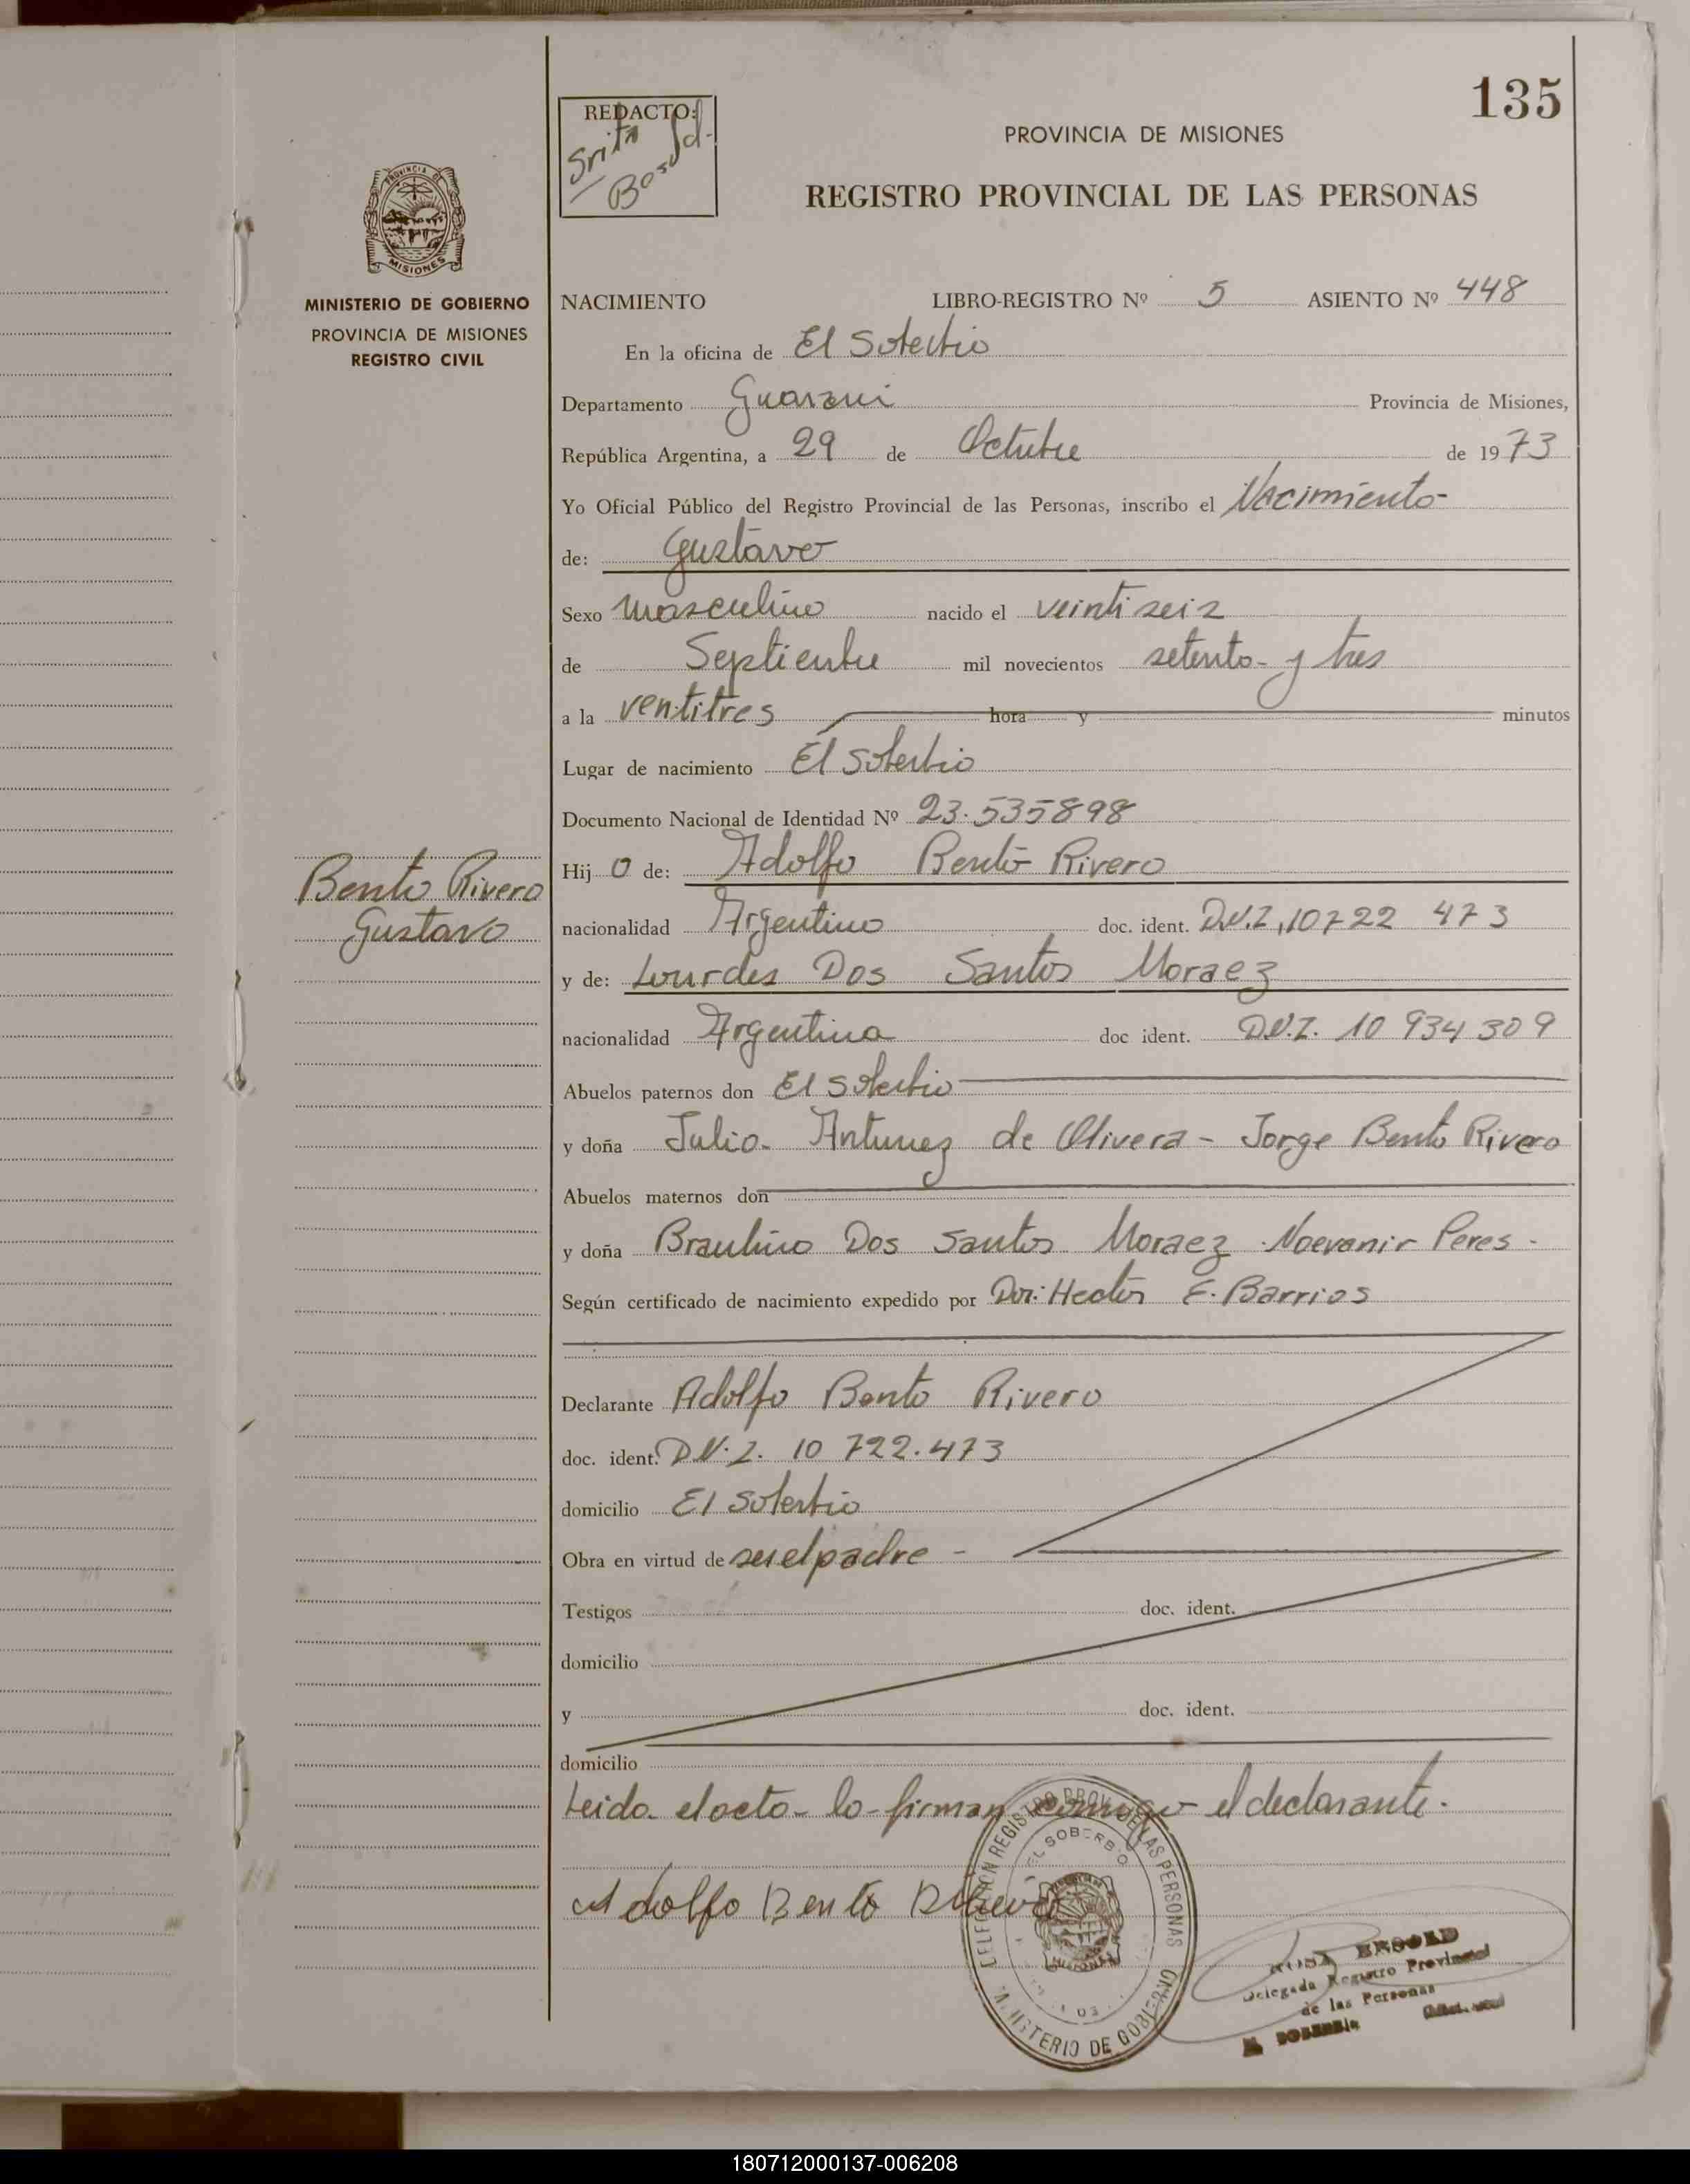 135
REDACTO:
Srita
PROVINCIA DE MISIONES
REGISTRO PROVINCIAL DE LAS PERSONAS
PROVINCIA DE
MISIONES
MINISTERIO DE GOBIERNO
PROVINCIA DE MISIONES
REGISTRO CIVIL
NACIMIENTO LIBRO-REGISTRO Nº 5 ASIENTO Nº 448
En la oficina de El Soberbio
Departamento Guarani Provincia de Misiones,
República Argentina, a 29 de Octubre de 1973
Yo Oficial Público del Registro Provincial de las Personas, inscribo el Nacimiento-
de: Gustavo
Sexo masculino nacido el veintiseis
de Septiembre mil novecientos setenta y tres
a la ventitres hora y minutos
Lugar de nacimiento El Soberbio
Documento Nacional de Identidad Nº 23.535898
Bento Rivero
Gustavo
Hijo de: Adolfo Bento Rivero
nacionalidad Argentino doc. ident. D.N.I, 10722 473
y de: Lourdes Dos Santos Moraez
nacionalidad Argentina doc ident. D.N.I. 10 934 309
Abuelos paternos don El Soberbio
y doña Julia Antunez de Olivera - Jorge Bento Rivero
Abuelos maternos don
y doña Braulino Dos Santos Moraez Noevanir Peres -
Según certificado de nacimiento expedido por Dr: Hector E. Barrios
Declarante Adolfo Bento Rivero
doc. ident. D.N.I. 10 722.473
domicilio El Soberbio
Obra en virtud de ser el padre -
Testigos doc. ident.
domicilio
y doc. ident.
domicilio
Leida el acta lo firman conmigo el declarante.
DELEGACION REGISTRO PROV. DE LAS PERSONAS
EL SOBERBIO
MISIONES
MINISTERIO DE GOBIERNO
Adolfo Bento Ribeiro
Delegada Registro Provincial
de las Personas
180712000137-006208